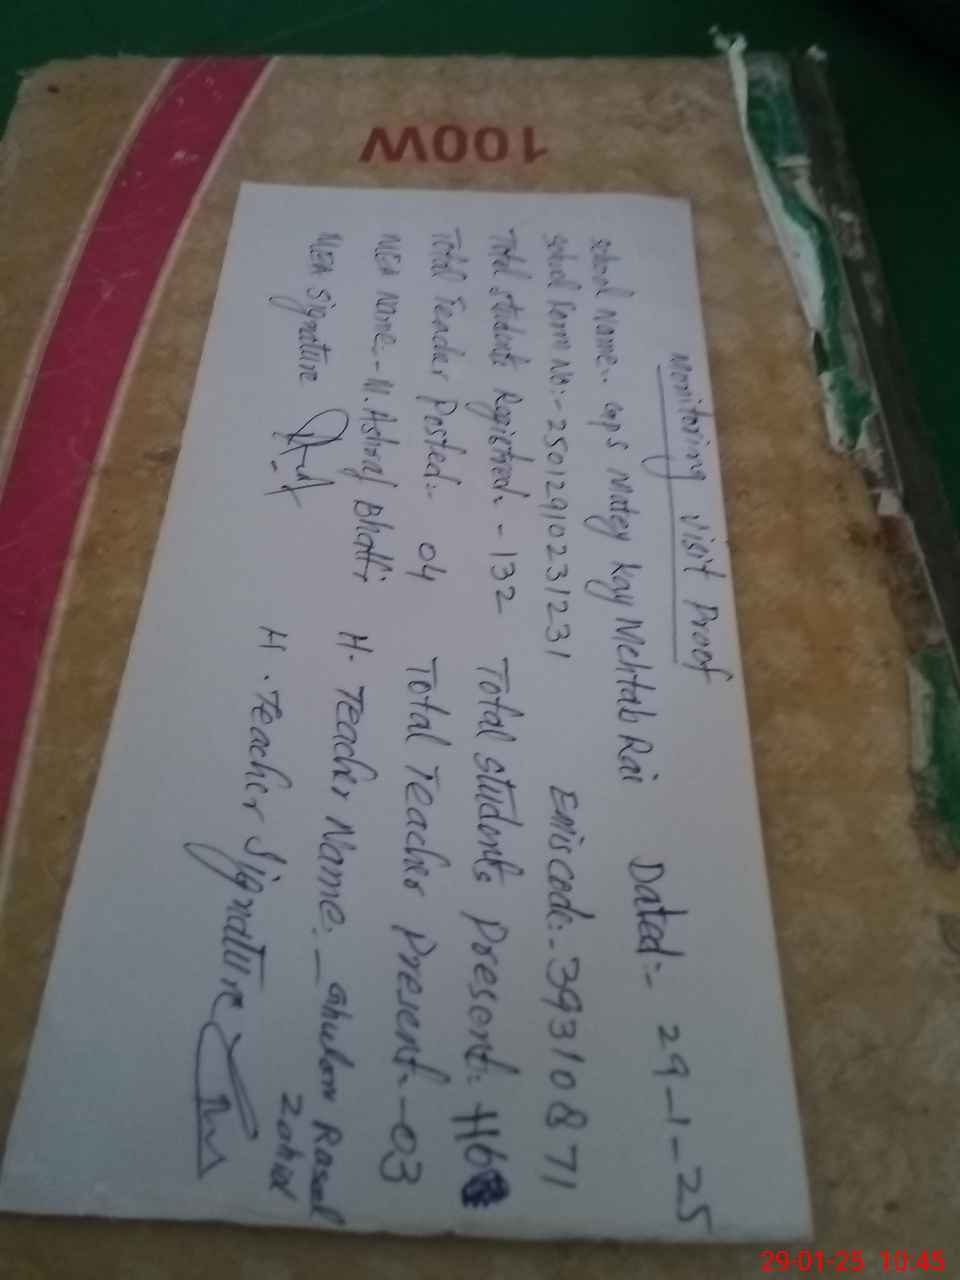 100W
Monitoring visit Proof
School Name:- GPS Matey Kay Mehtab Rai Dated:- 29-1-25
School Form No:- 2501291023123 1 Emis code:- 39310871
Total students Registred:- 132 Total students Present:- 116
Total Teacher Posted:- 04 Total Teacher Present:- 03
MEA Name:- M. Ashraf Bhatti H. Teacher Name:- Ghulam Rasool Zahid
MEA Signature H. Teacher Signature
29-01-25 10:45